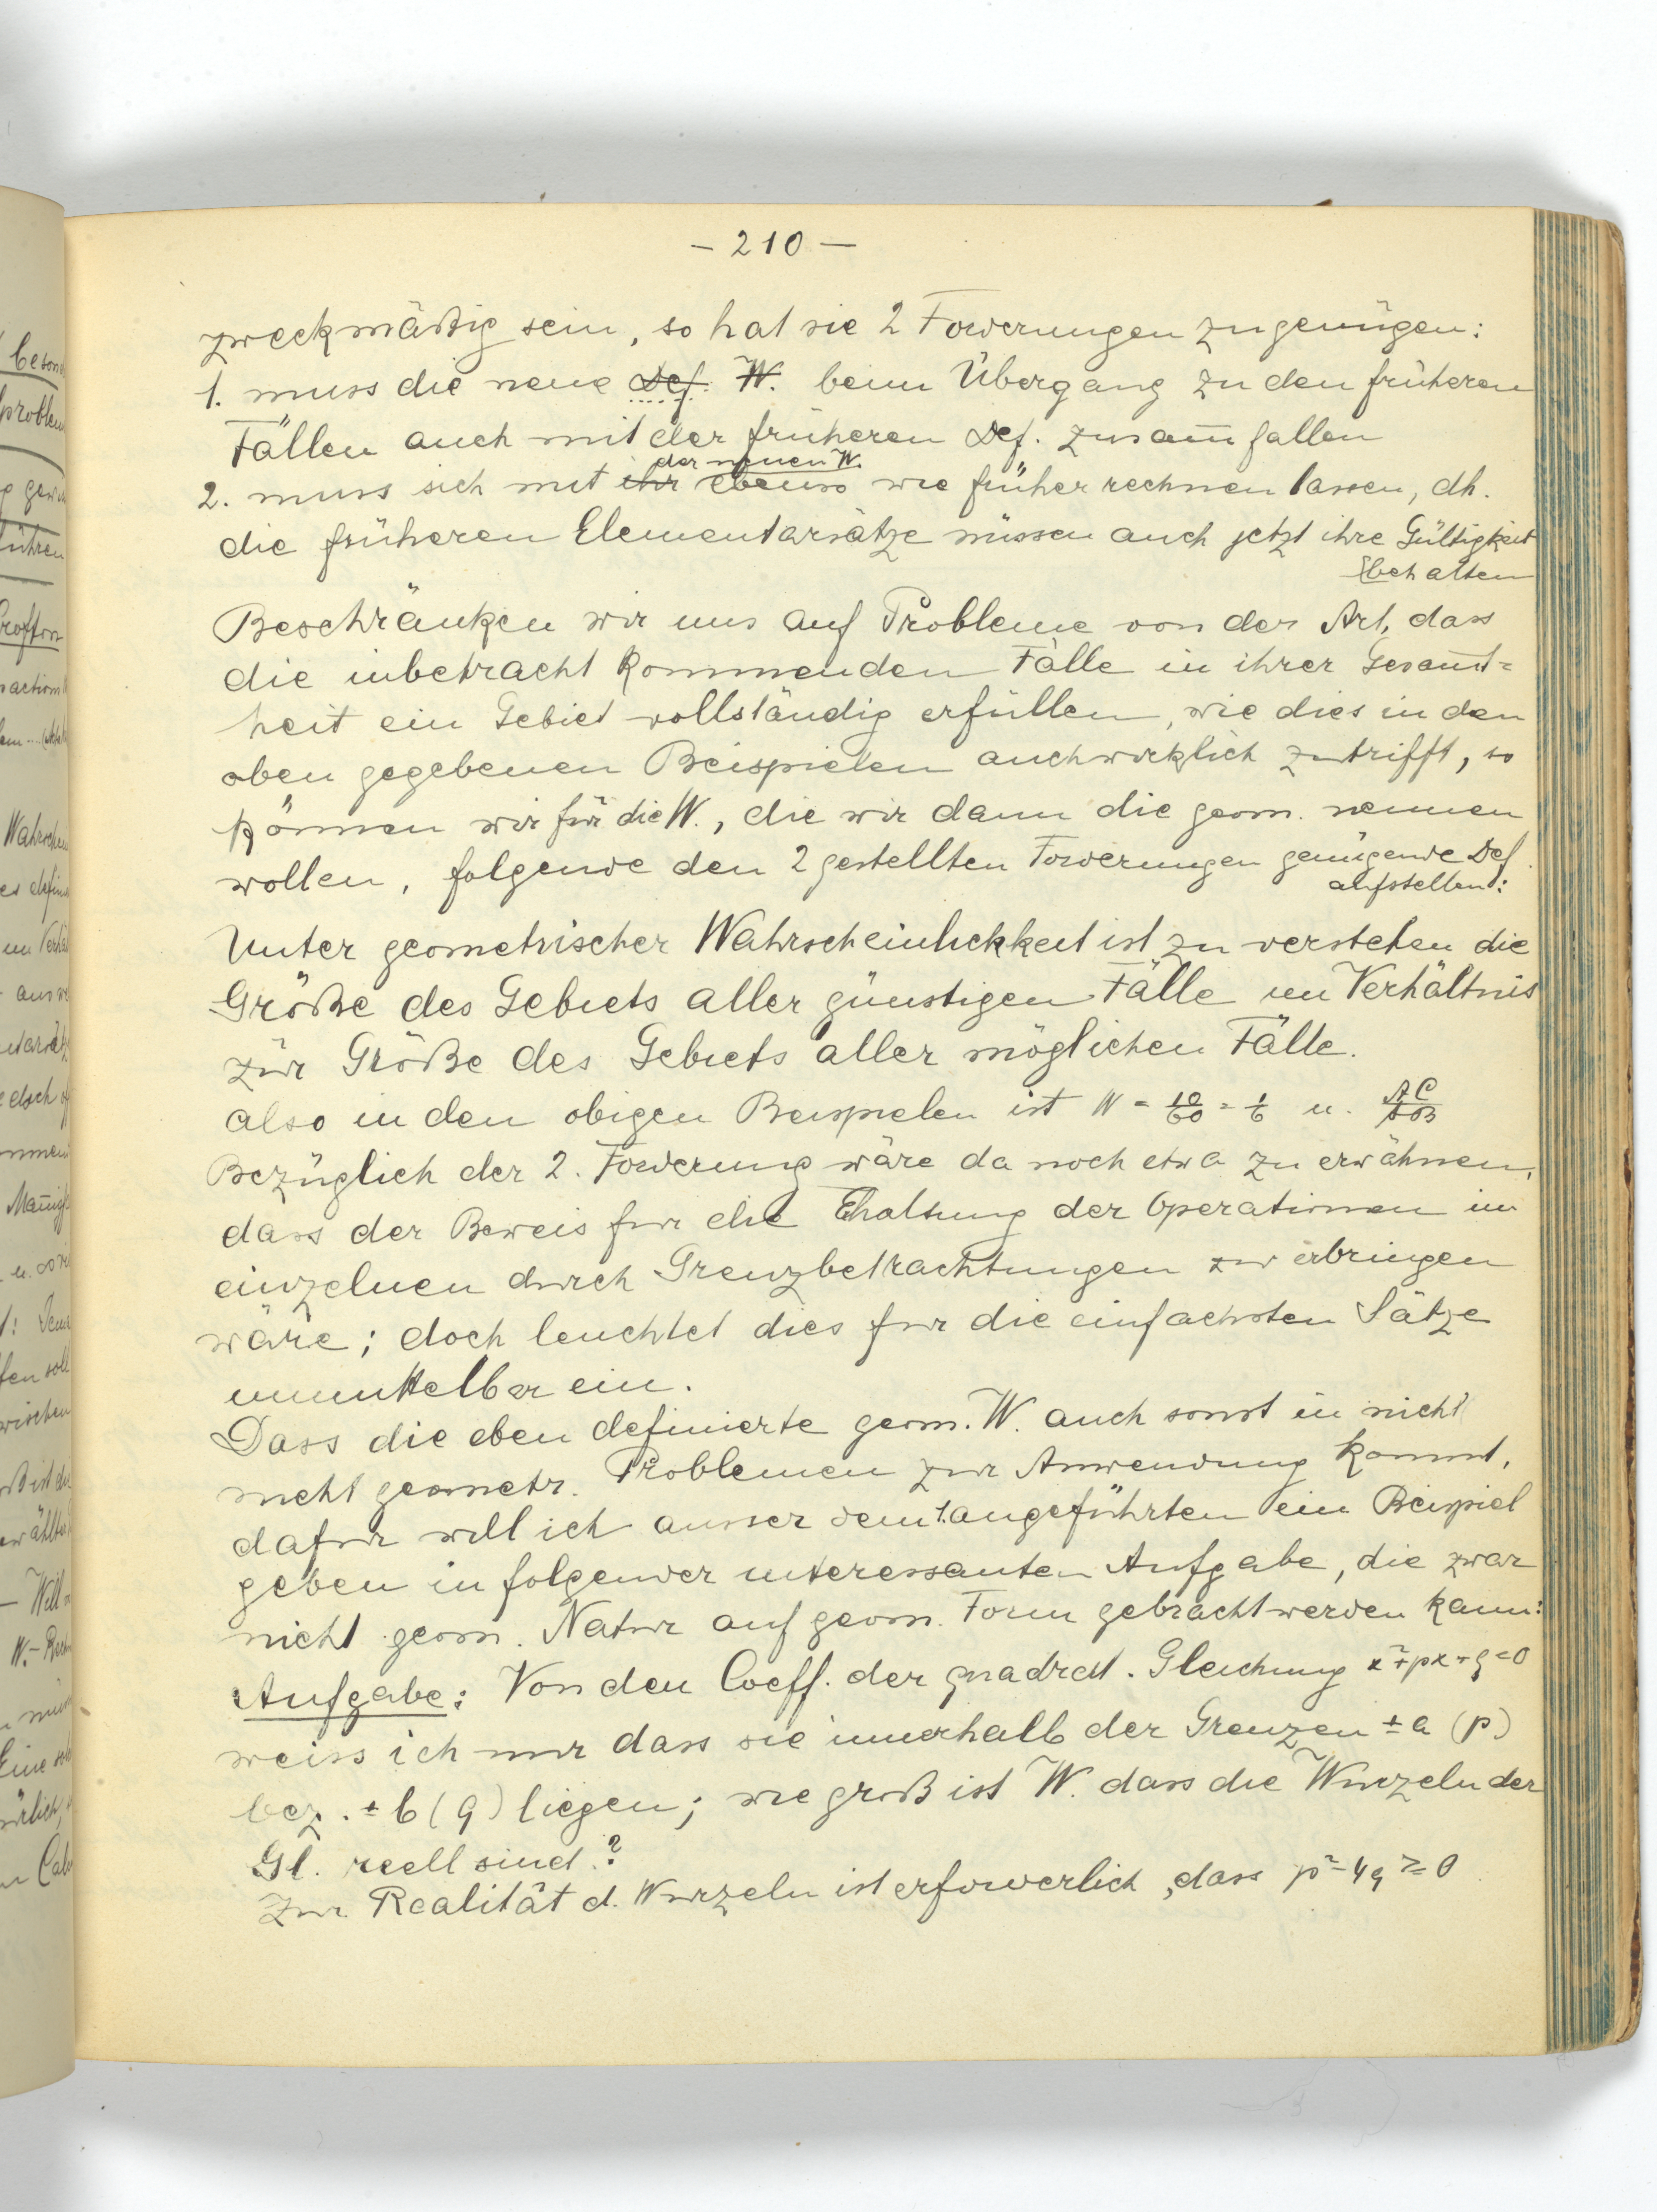 – 210 –
zweckmäßig sein, so hat sie 2 Forderungen zu genügen:
1. muss die neue Def. W. beim Übergang zu den früheren
Fällen auch mit der früheren Def. zusam̅fallen
der neuen W.
2. muss sich mit ihr ebenso wie früher rechnen lassen, dh.
die früheren Elementarsätze müssen auch jetzt ihre Gültigkeit
behalten
Beschränken wir uns auf Probleme von der Art, dass
die inbetracht kommenden Fälle in ihrer Gesam̅t=
heit ein Gebiet vollständig erfüllen, wie dies in den
oben gegebenen Beispielen auch wirklich zutrifft, so
können wir für die W., die wir dann die geom. nennen
wollen, folgende den 2 gestellten Forderungen genügende Def.
aufstellen:
Unter geometrischer Wahrscheinlichkeit ist zu verstehen die
Größe des Gebiets aller günstigen Fälle im Verhältnis
zur Größe des Gebiets aller möglichen Fälle.
also in den obigen Beispielen ist W = 10/60 = 1/6 u. AC/AB
Bezüglich der 2. Forderung wäre da noch etwa zu erwähnen,
dass der Beweis für die Ehaltung der Operationen im
einzelnen durch Grenzbetrachtungen zu erbringen
wäre; doch leuchtet dies für die einfachsten Sätze
unmittelbar ein.
Dass die eben definierte geom. W. auch sonst in nicht
nicht geometr. Problemen zur Anwendung kommt,
dafür will ich ausser dem 1. angeführten ein Beispiel
geben in folgender interessanten Aufgabe, die zwar
nicht geom. Natur auf geom. Form gebracht werden kann:
Aufgabe: Von den Coeff. der quadrat. Gleichung x²+px+q=0
weiss ich nur dass sie innerhalb der Grenzen ±a (p)
bez. ±b (q) liegen; wie groß ist W. dass die Wurzeln der
Gl. reell sind?
Zur Realität d. Wurzeln ist erforderlich, dass p²–4q ≥ 0